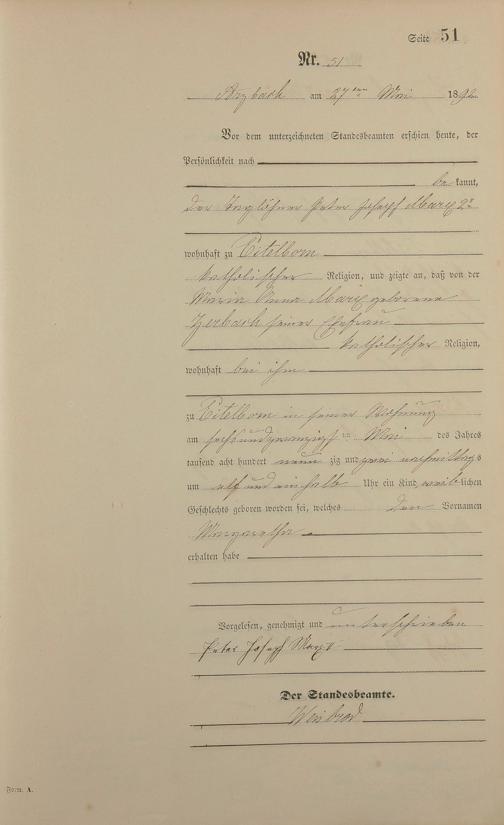 Seite 51
Nr. 51
Arzbach am 27ten Mai 1892
Vor dem unterzeichneten Standesbeamten erschien heute, der
Persönlichkeit nach
be kannt,
der Taglöhner Peter Joseph Marx 2r
wohnhaft zu Eitelborn
katholischer Religion, und zeigte an, daß von der
Maria Anna Marx geborene
Zerbach seiner Ehefrau
katholischer Religion,
wohnhaft bei ihm
zu Eitelborn in seiner Wohnung
am sechsundzwanzigsten Mai des Jahres
tausend acht hundert neun zig und zwei vormittags
um elf und ein halb Uhr ein Kind weiblichen
Geschlechts geboren worden sei, welches den Vornamen
Margaretha
erhalten habe
Vorgelesen, genehmigt und unterschrieben
Peter Joseph Marx II
Der Standesbeamte.
Form. A.